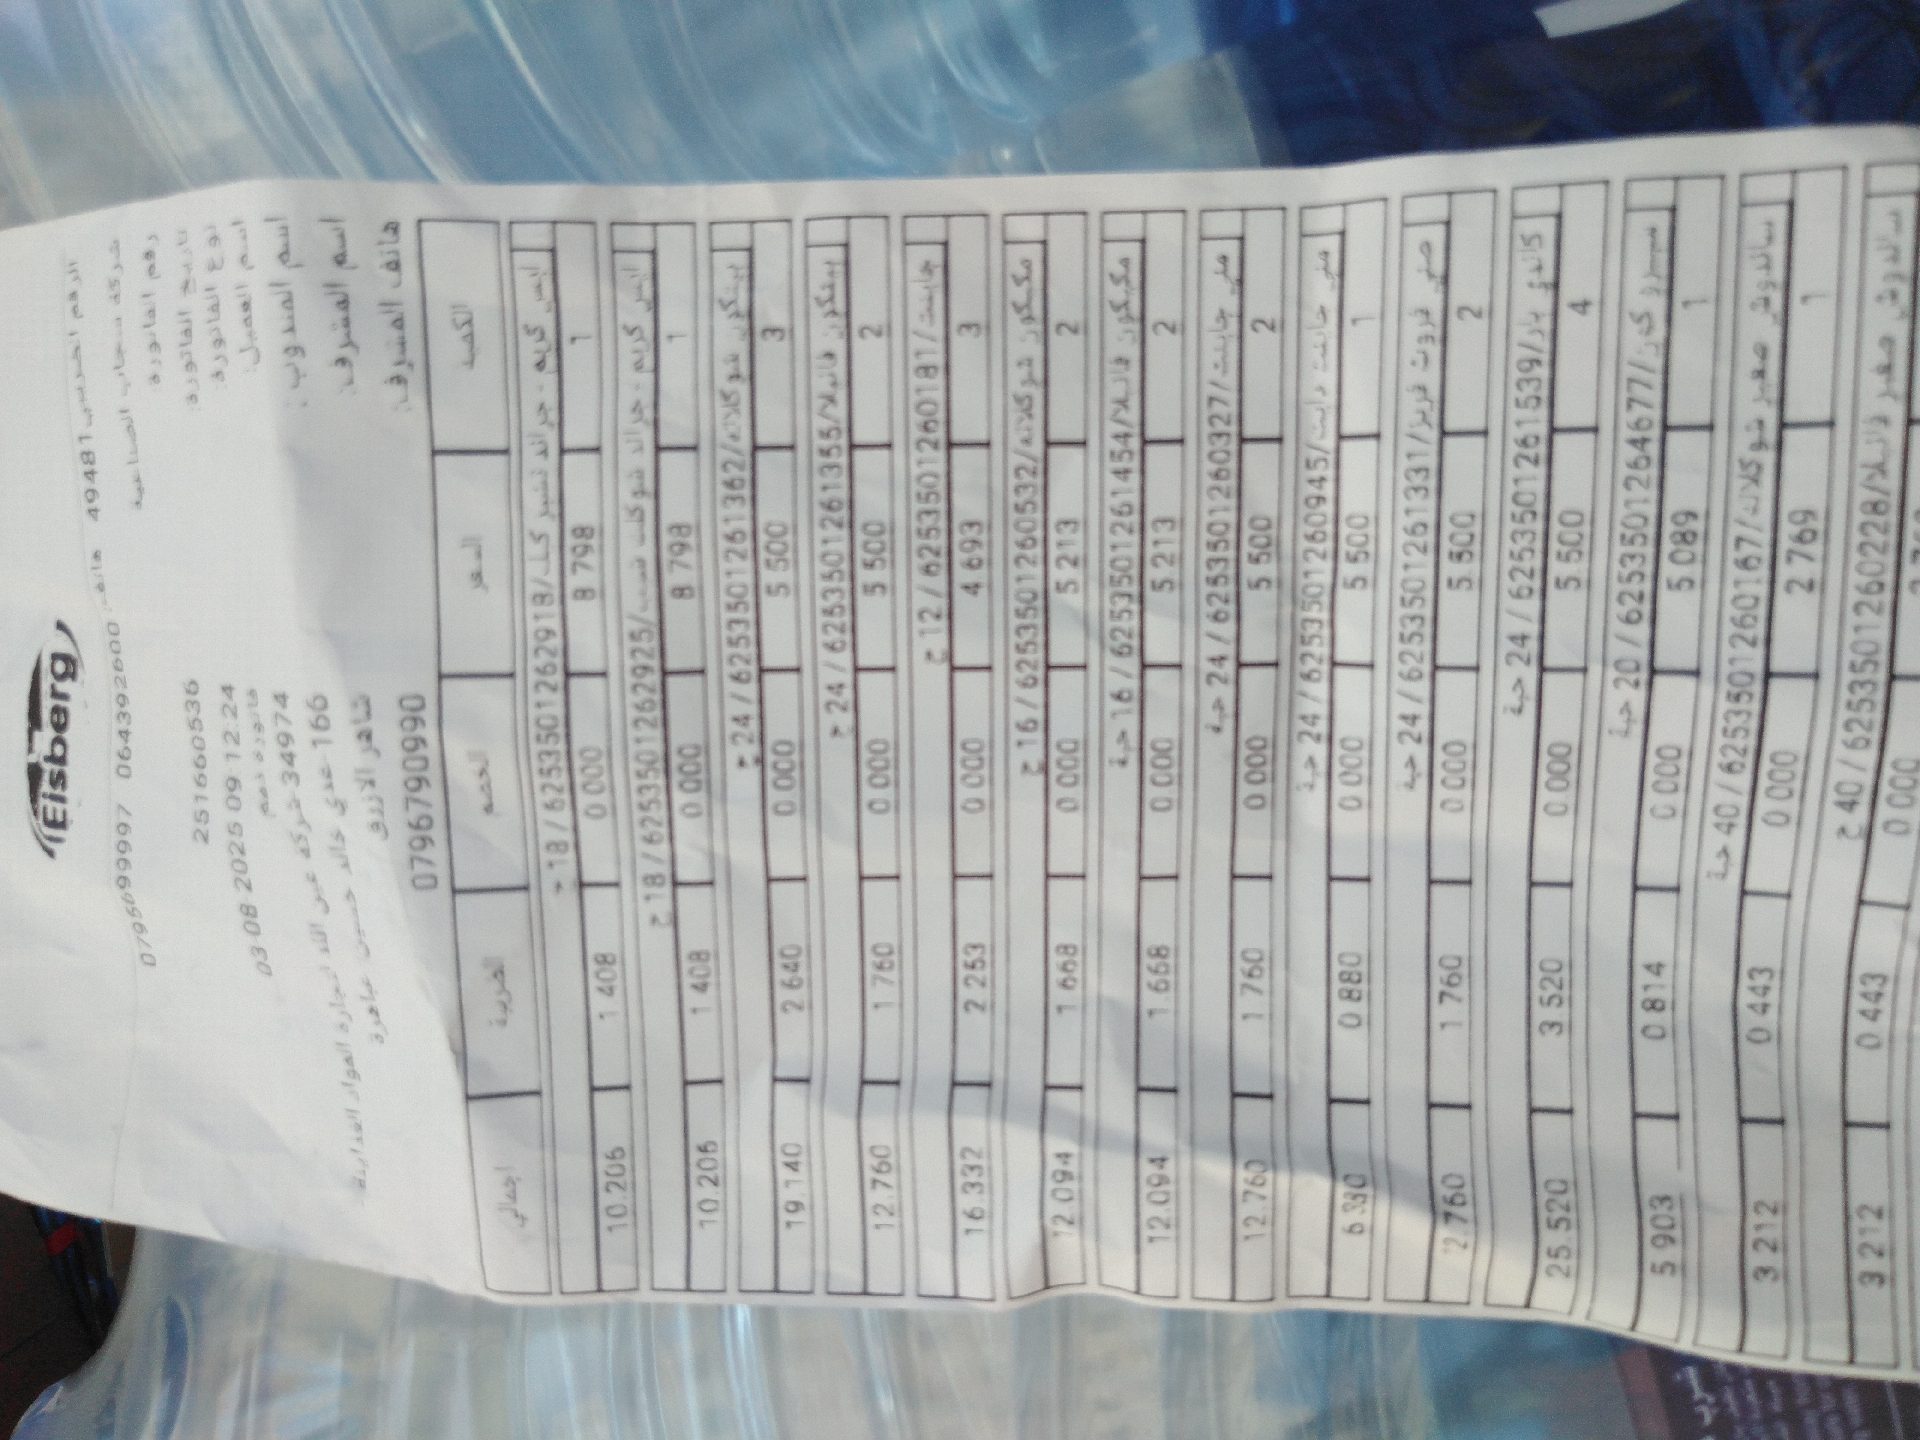 Eisberg
الرقم الضريبي 49481 هاتف: 064392600 0795699997
شركة سحاب الصناعية
رقم الفاتورة 2516660536
تاريخ الفاتورة: 03 08 2025 09 12:24
نوع الفاتورة: فاتورة ذمم
اسم العميل: 34974-شركة عين الله لتجارة المواد الغذائية
اسم المندوب: 166-عدي خالد حسين عباهرة
اسم المشرف: شاهر الازرق
هاتف المشرف: 0796790990
الكمية السعر الخصم الضريبة اجمالي
ايس كريم - جراند تشيز كيك/6253501262918 / 18
1 8 798 0 000 1 408 10.206
ايس كريم - جراند شوكلت شيب/6253501262925 / 18 ح
1 8 798 0 000 1 408 10.206
بيتكون شوكلاته/6253501261362 / 24 ح
3 5 500 0 000 2 640 19.140
بيتكون فانيلا/6253501261355 / 24 ح
2 5 500 0 000 1 760 12.760
جاينت/6253501260181 / 12 ح
3 4 693 0 000 2 253 16.332
مكيكون شوكلاته/6253501260532 / 16 ح
2 5 213 0 000 1 668 12.094
مكيكون فانيلا/6253501261454 / 16 حبة
2 5 213 0 000 1.668 12.094
مني جاينت/6253501260327 / 24 حبة
2 5 500 0 000 1 760 12.760
مني جاينت دايت/6253501260945 / 24 حبة
1 5 500 0 000 0 880 6 380
مني فروت فريز/6253501261331 / 24 حبة
2 5 500 0 000 1 760 12.760
كاندي بار/6253501261539 / 24 حبة
4 5 500 0 000 3 520 25.520
كون/6253501264677 / 20 حبة
1 5 089 0 000 0 814 5 903
ساندوش صغير شوكلاته/6253501260167 / 40 حبة
1 2 769 0 000 0 443 3 212
ساندوش صغير فانيلا/6253501260228 / 40 ح
0 000 0 443 3 212